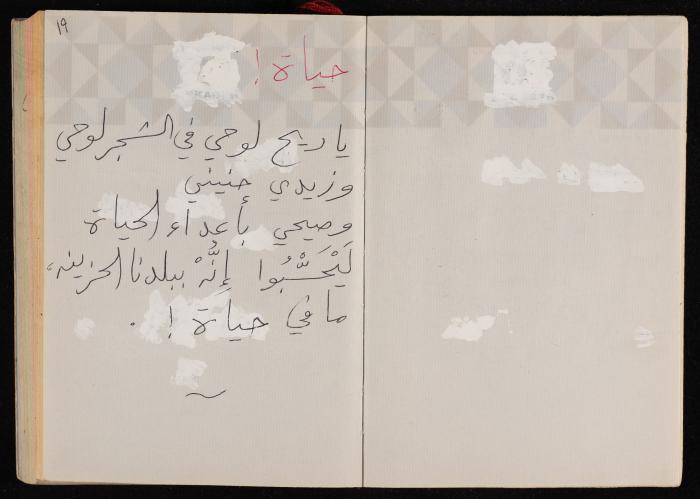 ١٩
حياة !
يا ريح لوحي في الشجر لوحي
وزيدي حنيني
وصيحي بأعداء الحياة
لَيْحَسْبُوا إنُّهْ ببلدنا الحزينه،
ما في حياة ! .